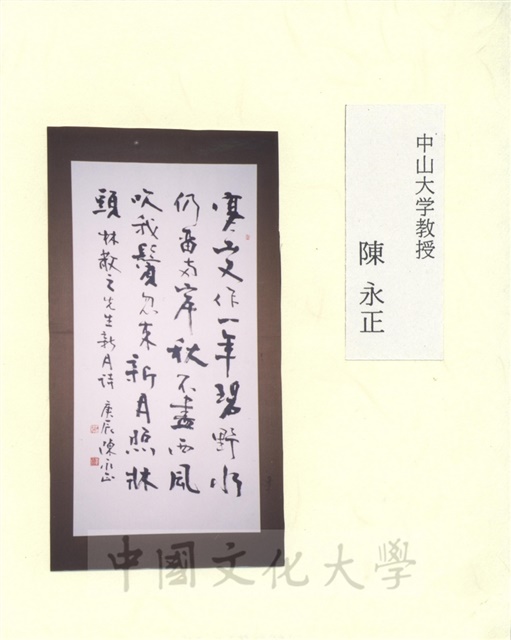 中山大学教授
陳永正
寒山又作一年碧野水
仍留两岸秋不盡西風
吹我鬢忽来新月照牀
頭 林散之先生新月詩 庚辰 陳永正
中國文化大學